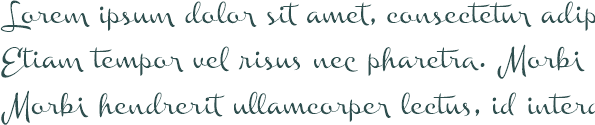 Lorem ipsum dolor sit amet, consectetur adip
Etiam tempor vel risus nec pharetra. Morbi
Morbi hendrerit ullamcorper lectus, id interd